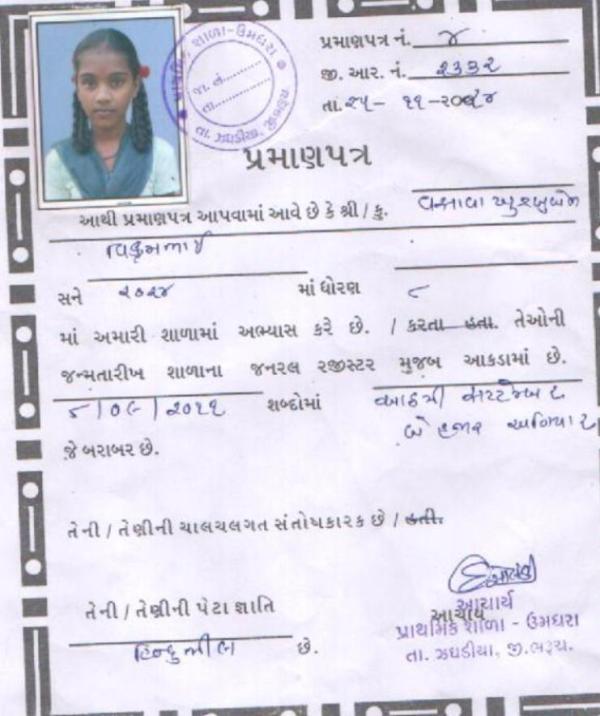 પ્રમાણપત્ર નં. ૪
જી. આર. નં. ૨૩૩૨
તાં. ૨૫ - ૧૧ - ૨૦૨૪
શાળા-ઉમધરા
જા. નં.
તા.
તા. ઝઘડીયા
પ્રમાણપત્ર
આથી પ્રમાણપત્ર આપવામાં આવે છે કે શ્રી / કુ. વસાવા ખુશબુબેન
વિક્રમભાઈ
સને ૨૦૨૪ માં ધોરણ ૮
માં અમારી શાળામાં અભ્યાસ કરે છે. / કરતા હતા. તેઓની
જન્મતારીખ શાળાના જનરલ રજીસ્ટર મુજબ આકડામાં છે.
૮/૦૯/૨૦૧૧ શબ્દોમાં આઠમી સપ્ટેમ્બર
બે હજાર અગિયાર
જે બરાબર છે.
તેની / તેણીની ચાલચલગત સંતોષકારક છે / હતી.
તેની / તેણીની પેટા જ્ઞાતિ
હિન્દુ ભીલ છે.
આચાર્ય
આચાર્ય
પ્રાથમિક શાળા - ઉમધરા
તા. ઝઘડીયા, જી.ભરૂચ.